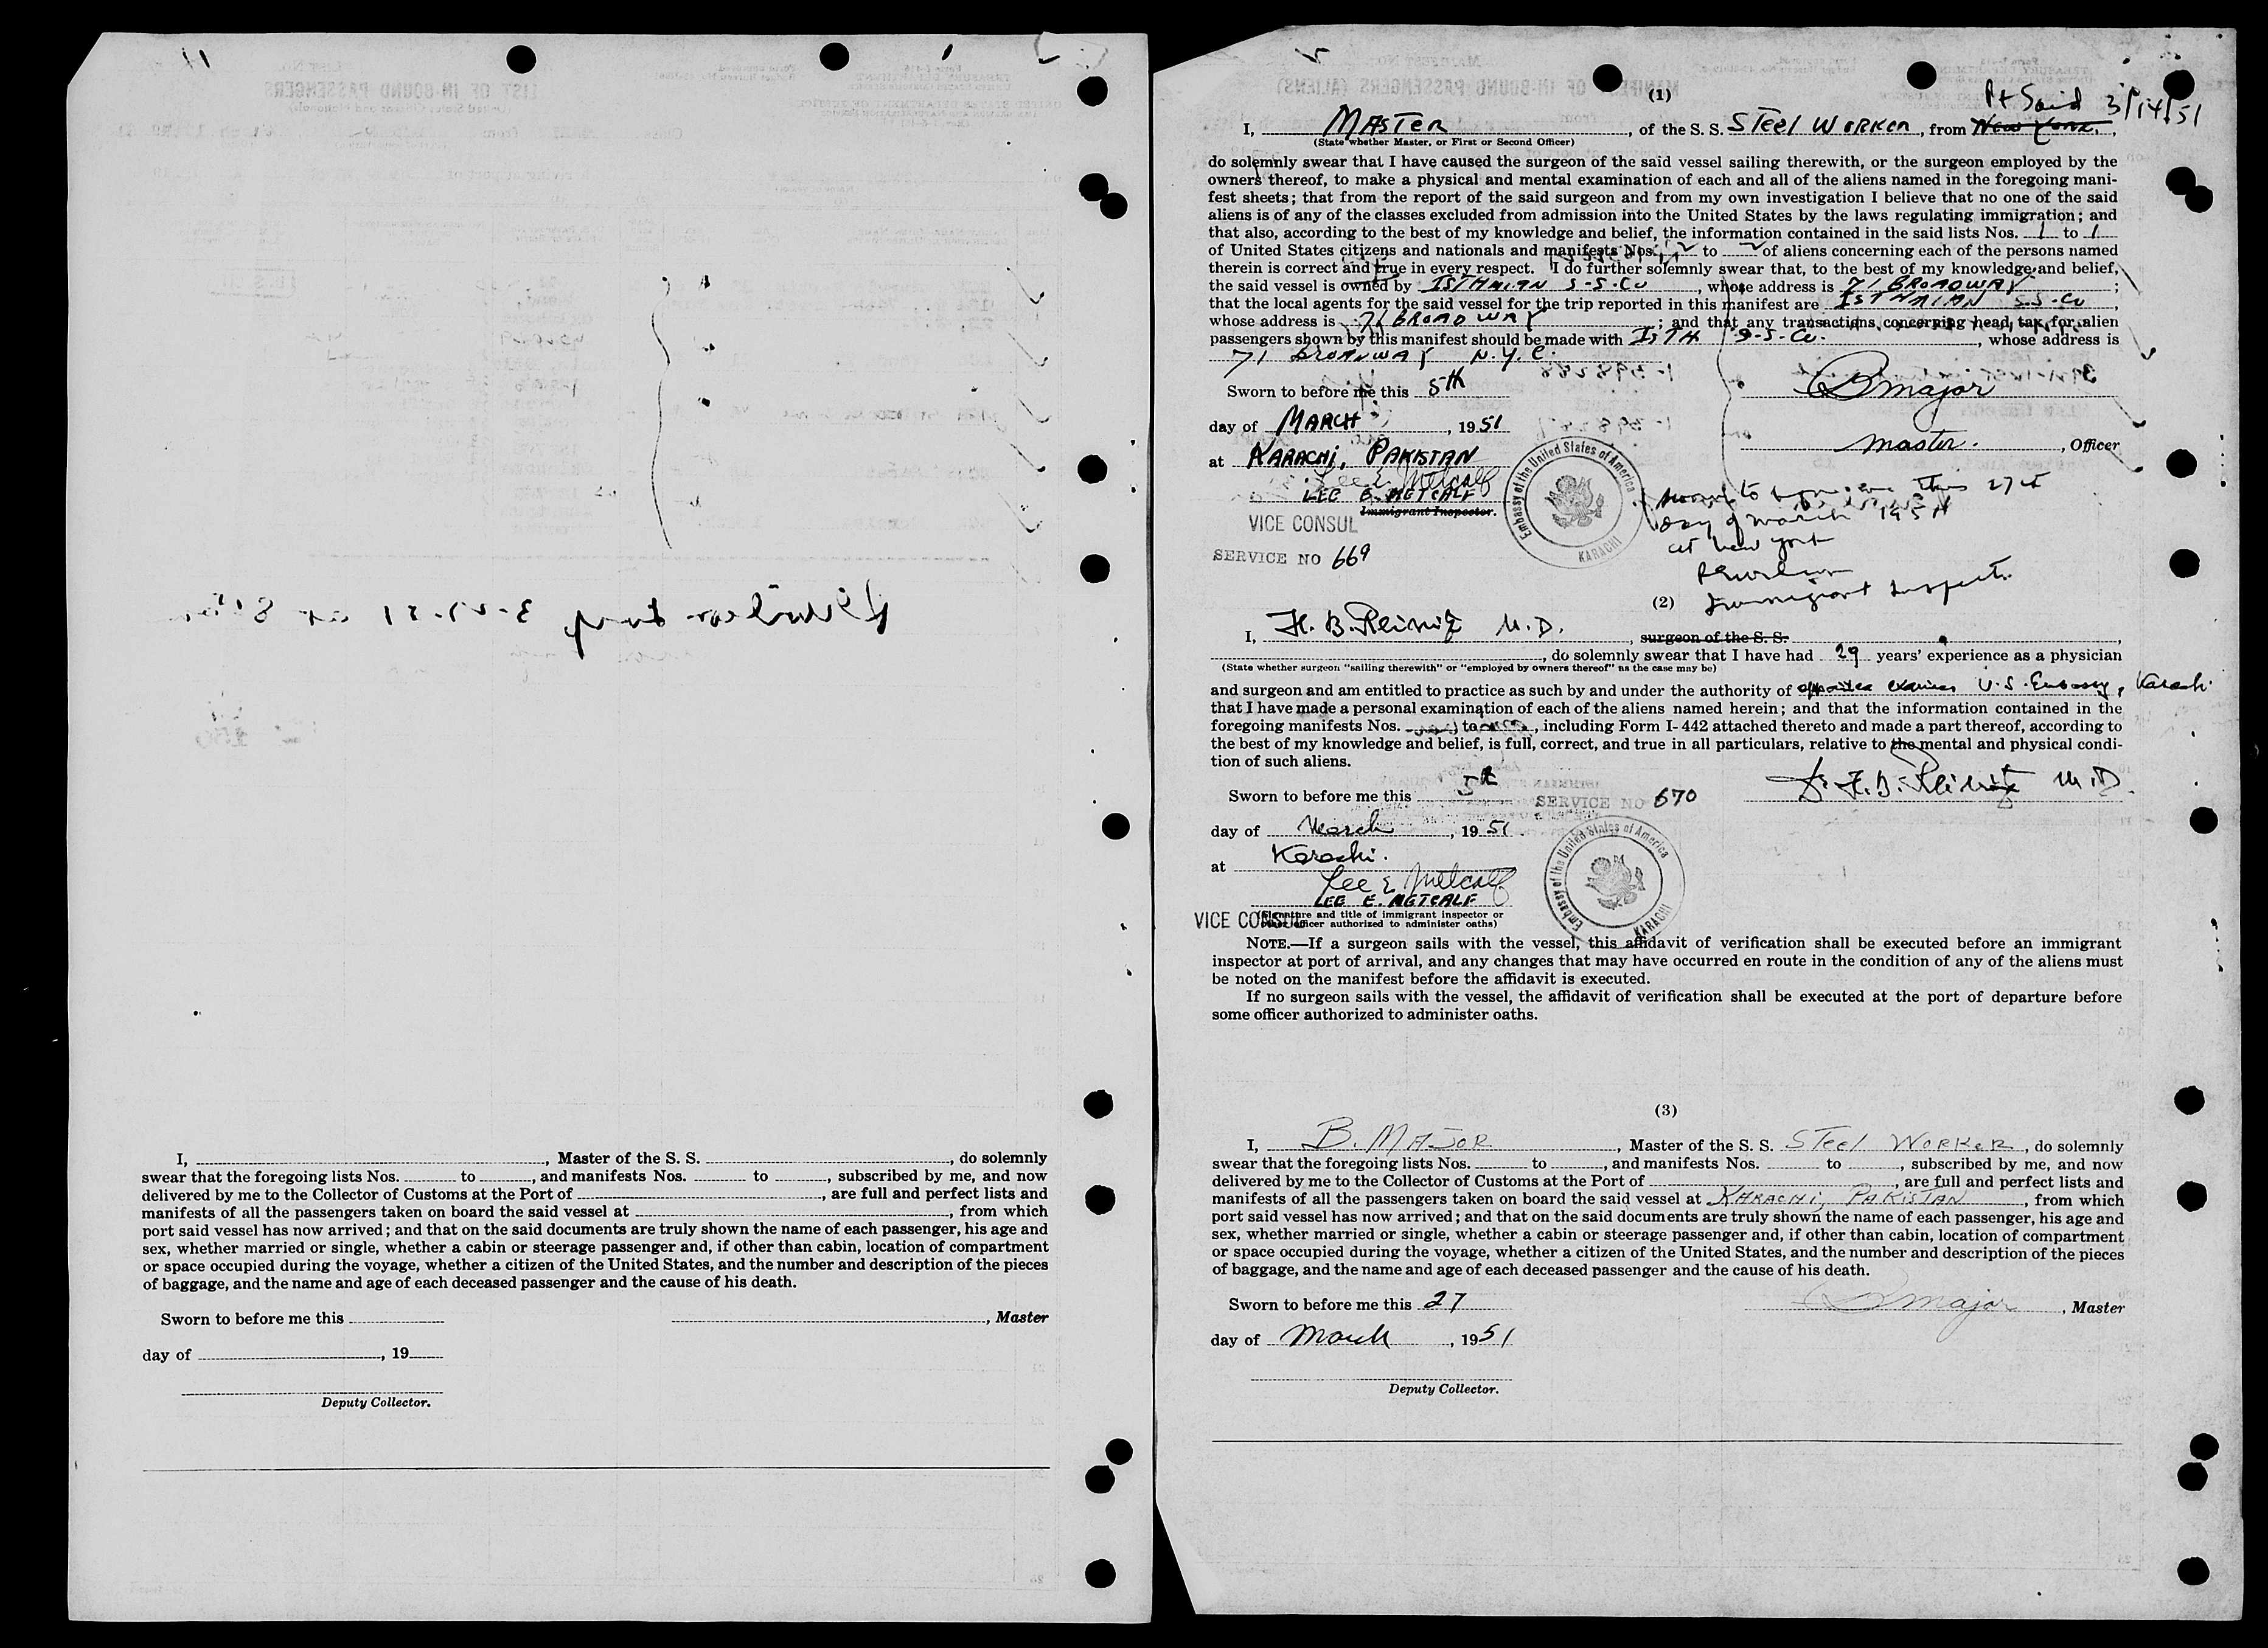 I, , Master of the S. S. , do solemnly
swear that the foregoing lists Nos. to , and manifests Nos. to , subscribed by me, and now
delivered by me to the Collector of Customs at the Port of , are full and perfect lists and
manifests of all the passengers taken on board the said vessel at , from which
port said vessel has now arrived; and that on the said documents are truly shown the name of each passenger, his age and
sex, whether married or single, whether a cabin or steerage passenger and, if other than cabin, location of compartment
or space occupied during the voyage, whether a citizen of the United States, and the number and description of the pieces
of baggage, and the name and age of each deceased passenger and the cause of his death.
Sworn to before me this
, Master
day of , 19
Deputy Collector.
(1)
Pt Said 3/14/51
I, MASTER, of the S. S. STEEL WORKER, from New York,
(State whether Master, or First or Second Officer)
do solemnly swear that I have caused the surgeon of the said vessel sailing therewith, or the surgeon employed by the
owners thereof, to make a physical and mental examination of each and all of the aliens named in the foregoing mani-
fest sheets; that from the report of the said surgeon and from my own investigation I believe that no one of the said
aliens is of any of the classes excluded from admission into the United States by the laws regulating immigration; and
that also, according to the best of my knowledge and belief, the information contained in the said lists Nos. 1 to 1
of United States citizens and nationals and manifests Nos. to of aliens concerning each of the persons named
therein is correct and true in every respect. I do further solemnly swear that, to the best of my knowledge and belief,
the said vessel is owned by ISTHMIAN S-S-Co, whose address is 71 BROADWAY;
that the local agents for the said vessel for the trip reported in this manifest are ISTHMIAN S.S.Co,
whose address is 71 BROADWAY; and that any transactions concerning head tax for alien
passengers shown by this manifest should be made with ISTH S-S-Co., whose address is
71 BROADWAY N.Y.C.
Sworn to before me this 5th
B Major
day of MARCH, 1951
master., Officer
at KARACHI, PAKISTAN
Lee E. Metcalf
LEE E. METCALF
Immigrant Inspector.
VICE CONSUL
SERVICE NO 669
Embassy of the United States of America
KARACHI
sworn to before me this 27th
day of March 1951
at New York
Immigrant Inspector
(2)
I, H. B. Reinitz M.D., surgeon of the S. S. ,
, do solemnly swear that I have had 29 years' experience as a physician
(State whether surgeon "sailing therewith" or "employed by owners thereof" as the case may be)
and surgeon and am entitled to practice as such by and under the authority of U.S. Embassy, Karachi
that I have made a personal examination of each of the aliens named herein; and that the information contained in the
foregoing manifests Nos. to , including Form I-442 attached thereto and made a part thereof, according to
the best of my knowledge and belief, is full, correct, and true in all particulars, relative to the mental and physical condi-
tion of such aliens.
Sworn to before me this 5th
SERVICE NO 670
M.D.
day of March, 1951.
at Karachi.
Lee E Metcalf
LEE E. METCALF
VICE CONSUL
(Signature and title of immigrant inspector or
other officer authorized to administer oaths)
Embassy of the United States of America
KARACHI
NOTE.—If a surgeon sails with the vessel, this affidavit of verification shall be executed before an immigrant
inspector at port of arrival, and any changes that may have occurred en route in the condition of any of the aliens must
be noted on the manifest before the affidavit is executed.
If no surgeon sails with the vessel, the affidavit of verification shall be executed at the port of departure before
some officer authorized to administer oaths.
(3)
I, B. MAJOR, Master of the S. S. STEEL WORKER, do solemnly
swear that the foregoing lists Nos. to , and manifests Nos. to , subscribed by me, and now
delivered by me to the Collector of Customs at the Port of , are full and perfect lists and
manifests of all the passengers taken on board the said vessel at KARACHI, PAKISTAN, from which
port said vessel has now arrived; and that on the said documents are truly shown the name of each passenger, his age and
sex, whether married or single, whether a cabin or steerage passenger and, if other than cabin, location of compartment
or space occupied during the voyage, whether a citizen of the United States, and the number and description of the pieces
of baggage, and the name and age of each deceased passenger and the cause of his death.
Sworn to before me this 27
B Major, Master
day of March, 1951
Deputy Collector.